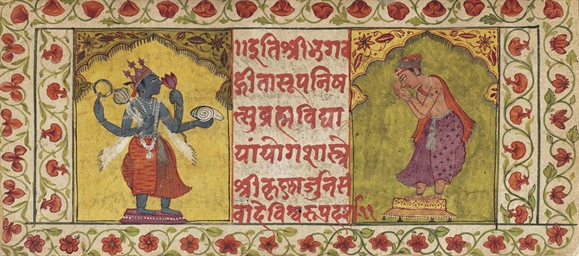 ॥इतिश्रीभगव
द्गीतासूपनिष
त्सुब्रह्मविद्या
यायोगशास्त्रे
श्रीकृष्णार्जुनसं
वादेविश्वरूपदर्श११